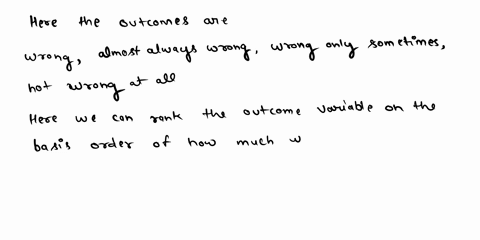 Here the outcomes are
wrong, almost always wrong, wrong only sometimes,
not wrong at all
Here we can rank the outcome variable on the
basis order of how much w